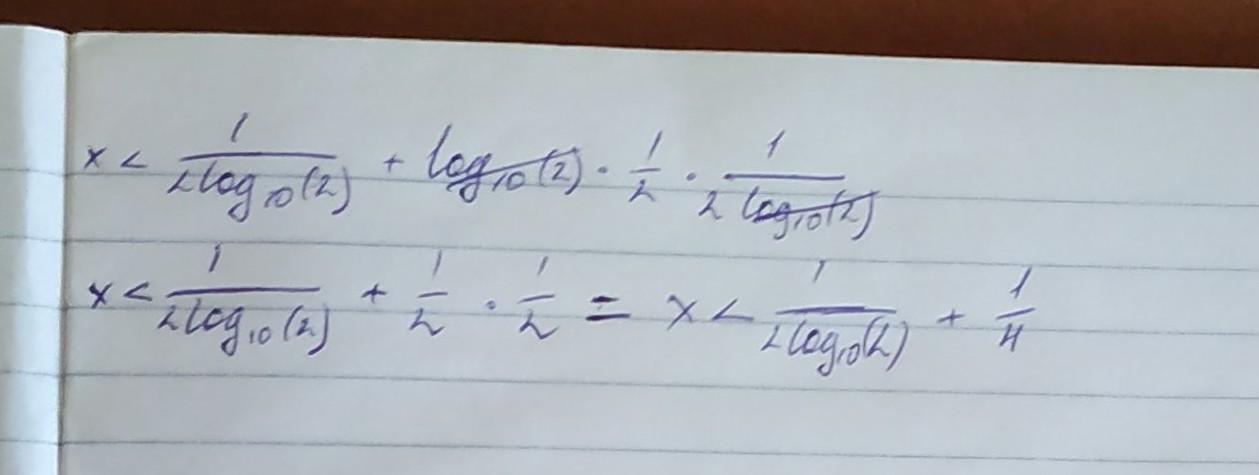 x < 1/(2 log₁₀(2)) + log₁₀(2) · 1/2 · 1/(2 log₁₀(2))
x < 1/(2 log₁₀(2)) + 1/2 · 1/2 = x < 1/(2 log₁₀(2)) + 1/4